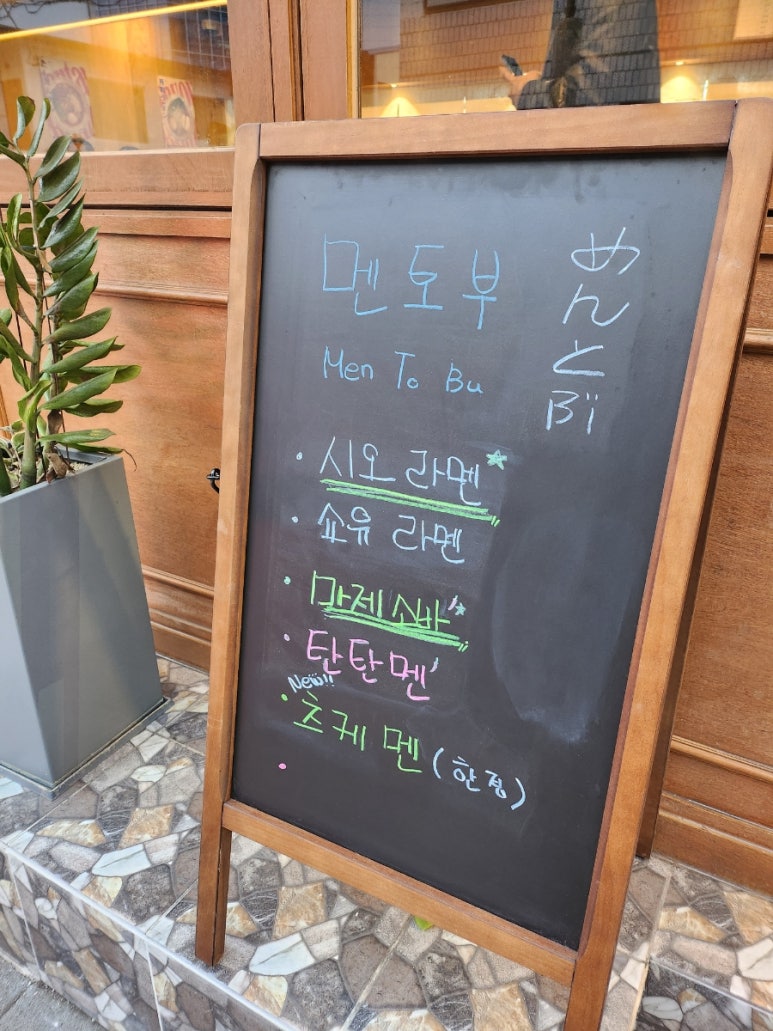 멘토부
めんとBï
Men To Bu
시오 라멘
쇼유 라멘
마제소바
탄탄멘
New!!
츠케멘 (한정)